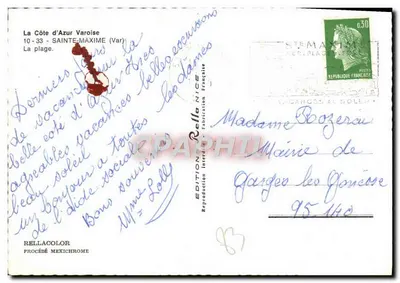 La Côte d'Azur Varoise
10 - 33 - SAINTE-MAXIME (Var)
La plage.
Derniers jours
de vacances sur la
belle côte d'Azur très
agréables vacances belles excursions
beau soleil
un bonjour à toutes
les dames
de l'aide sociale
Bons souvenirs
Mme Lolly
EDITIONS Rella NICE
Reproduction interdite - Fabrication Française
RELLACOLOR
PROCÉDÉ MEXICHROME
0,30
POSTES
REPUBLIQUE FRANCAISE
Madame Rozerou
Mairie de
Garges les Gonesse
95140
83